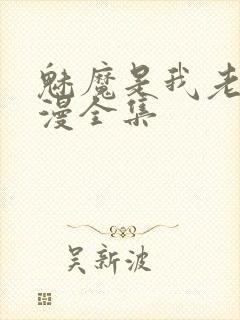 魅魔是我老
漫全集
吴新波